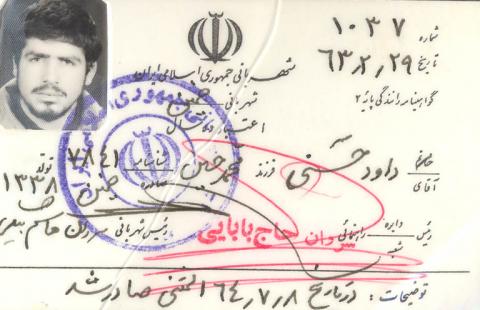 شماره ۱۰۳۷
تاریخ ۶۳/۲/۲۹
شهربانی جمهوری اسلامی ایران
گواهینامه رانندگی پایه ۲
شهربانی خمین
اعتبار
خانم آقای داود حسنی فرزند محمدحسین شناسنامه ۷۸۴۱ تولد
صادره خمین ۱۳۳۸
رئیس دایره راهنمائی سروان حاج بابایی رئیس شهربانی
شعبه
توضیحات : در تاریخ ۶۴/۷/۸ المثنی صادر شد